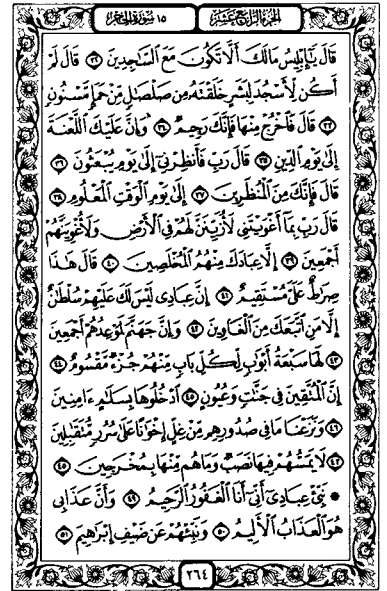 الجزء الرابع عشر
١٥ سورة الحجر
قَالَ يَٰٓإِبْلِيسُ مَالَكَ أَلَّا تَكُونَ مَعَ ٱلسَّٰجِدِينَ ٣٢ قَالَ لَمْ
أَكُن لِّأَسْجُدَ لِبَشَرٍ خَلَقْتَهُۥ مِن صَلْصَٰلٍ مِّنْ حَمَإٍ مَّسْنُونٍ
٣٣ قَالَ فَٱخْرُجْ مِنْهَا فَإِنَّكَ رَجِيمٌ ٣٤ وَإِنَّ عَلَيْكَ ٱللَّعْنَةَ
إِلَىٰ يَوْمِ ٱلدِّينِ ٣٥ قَالَ رَبِّ فَأَنظِرْنِىٓ إِلَىٰ يَوْمِ يُبْعَثُونَ ٣٦
قَالَ فَإِنَّكَ مِنَ ٱلْمُنظَرِينَ ٣٧ إِلَىٰ يَوْمِ ٱلْوَقْتِ ٱلْمَعْلُومِ ٣٨
قَالَ رَبِّ بِمَآ أَغْوَيْتَنِى لَأُزَيِّنَنَّ لَهُمْ فِى ٱلْأَرْضِ وَلَأُغْوِيَنَّهُمْ
أَجْمَعِينَ ٣٩ إِلَّا عِبَادَكَ مِنْهُمُ ٱلْمُخْلَصِينَ ٤٠ قَالَ هَٰذَا
صِرَٰطٌ عَلَىَّ مُسْتَقِيمٌ ٤١ إِنَّ عِبَادِى لَيْسَ لَكَ عَلَيْهِمْ سُلْطَٰنٌ
إِلَّا مَنِ ٱتَّبَعَكَ مِنَ ٱلْغَاوِينَ ٤٢ وَإِنَّ جَهَنَّمَ لَمَوْعِدُهُمْ أَجْمَعِينَ
٤٣ لَهَا سَبْعَةُ أَبْوَٰبٍ لِّكُلِّ بَابٍ مِّنْهُمْ جُزْءٌ مَّقْسُومٌ ٤٤
إِنَّ ٱلْمُتَّقِينَ فِى جَنَّٰتٍ وَعُيُونٍ ٤٥ ٱدْخُلُوهَا بِسَلَٰمٍ ءَامِنِينَ
٤٦ وَنَزَعْنَا مَا فِى صُدُورِهِم مِّنْ غِلٍّ إِخْوَٰنًا عَلَىٰ سُرُرٍ مُّتَقَٰبِلِينَ
٤٧ لَا يَمَسُّهُمْ فِيهَا نَصَبٌ وَمَا هُم مِّنْهَا بِمُخْرَجِينَ ٤٨
* نَبِّئْ عِبَادِىٓ أَنِّىٓ أَنَا ٱلْغَفُورُ ٱلرَّحِيمُ ٤٩ وَأَنَّ عَذَابِى
هُوَ ٱلْعَذَابُ ٱلْأَلِيمُ ٥٠ وَنَبِّئْهُمْ عَن ضَيْفِ إِبْرَٰهِيمَ ٥١
٢٦٤